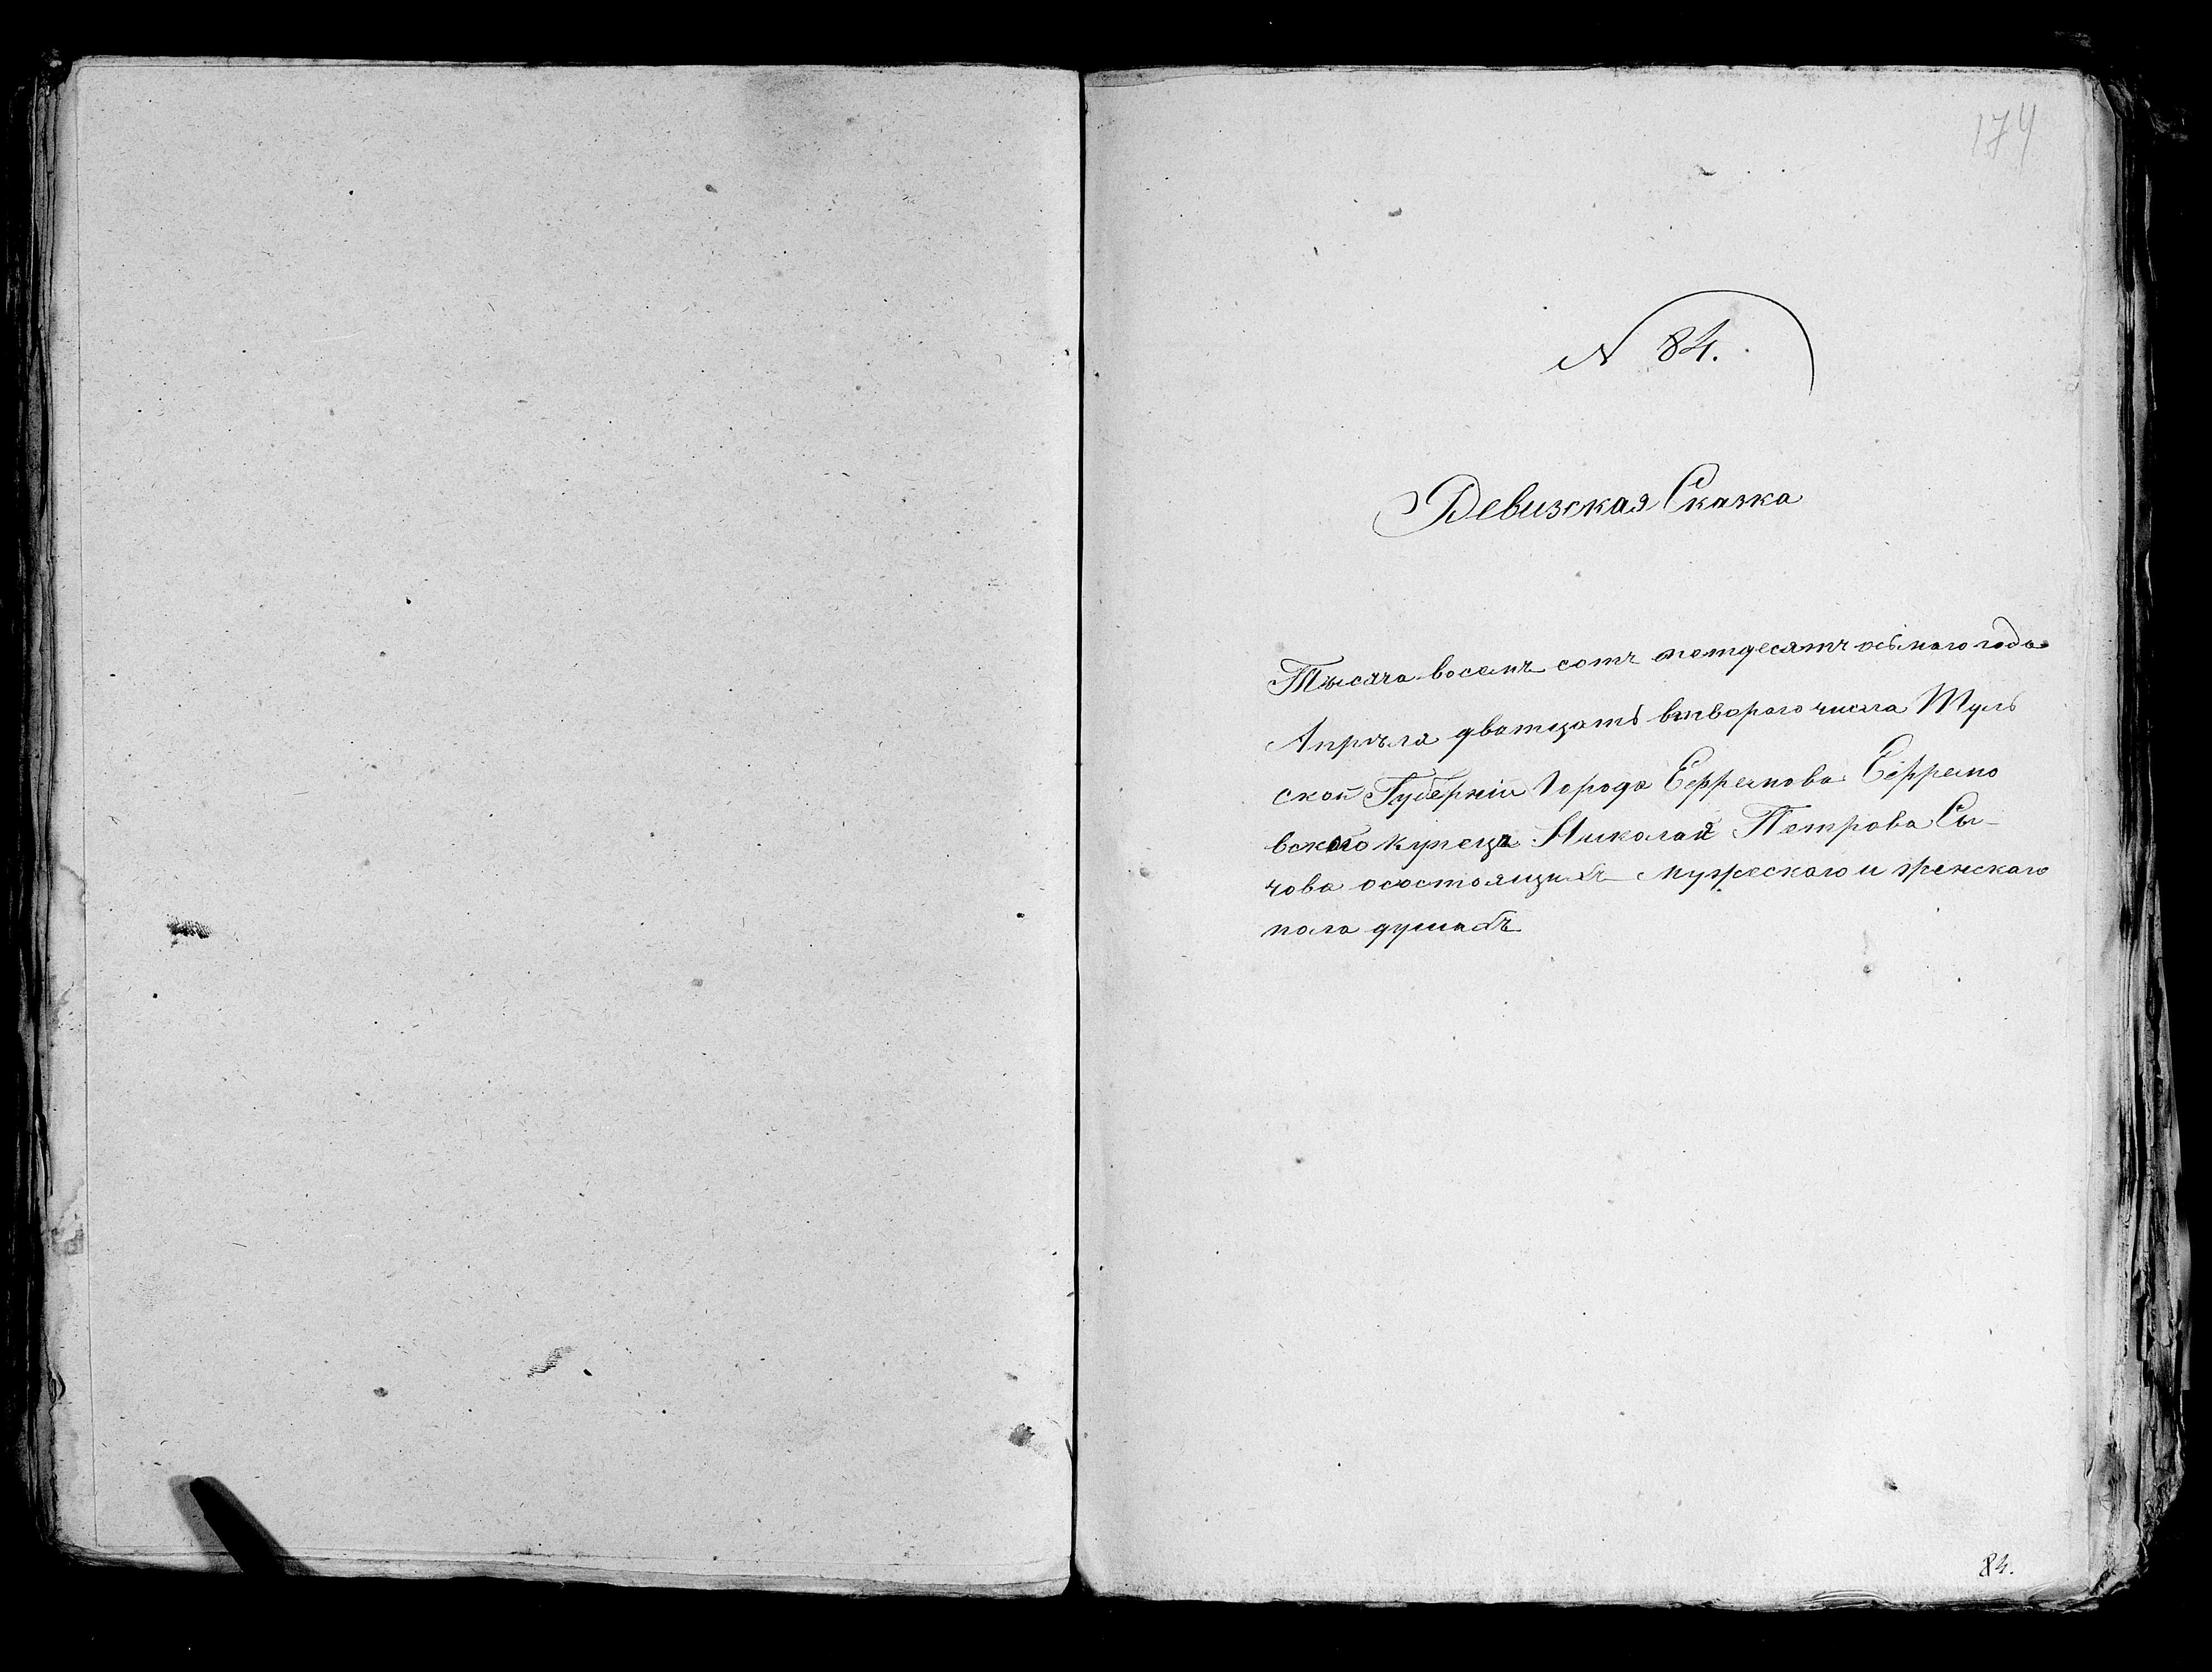 174
N 84.
Ревизская Сказка
Тысяча восемъ сотъ петдесятъ осьмаго года
Апрѣля дватцать втвораго числа Туль
ской Губерніи Города Ефремова Ефремо
вскаго купеца Николая Петрова Сы-
чова осостоящихъ мужескаго и женскаго
пола душахъ
84.